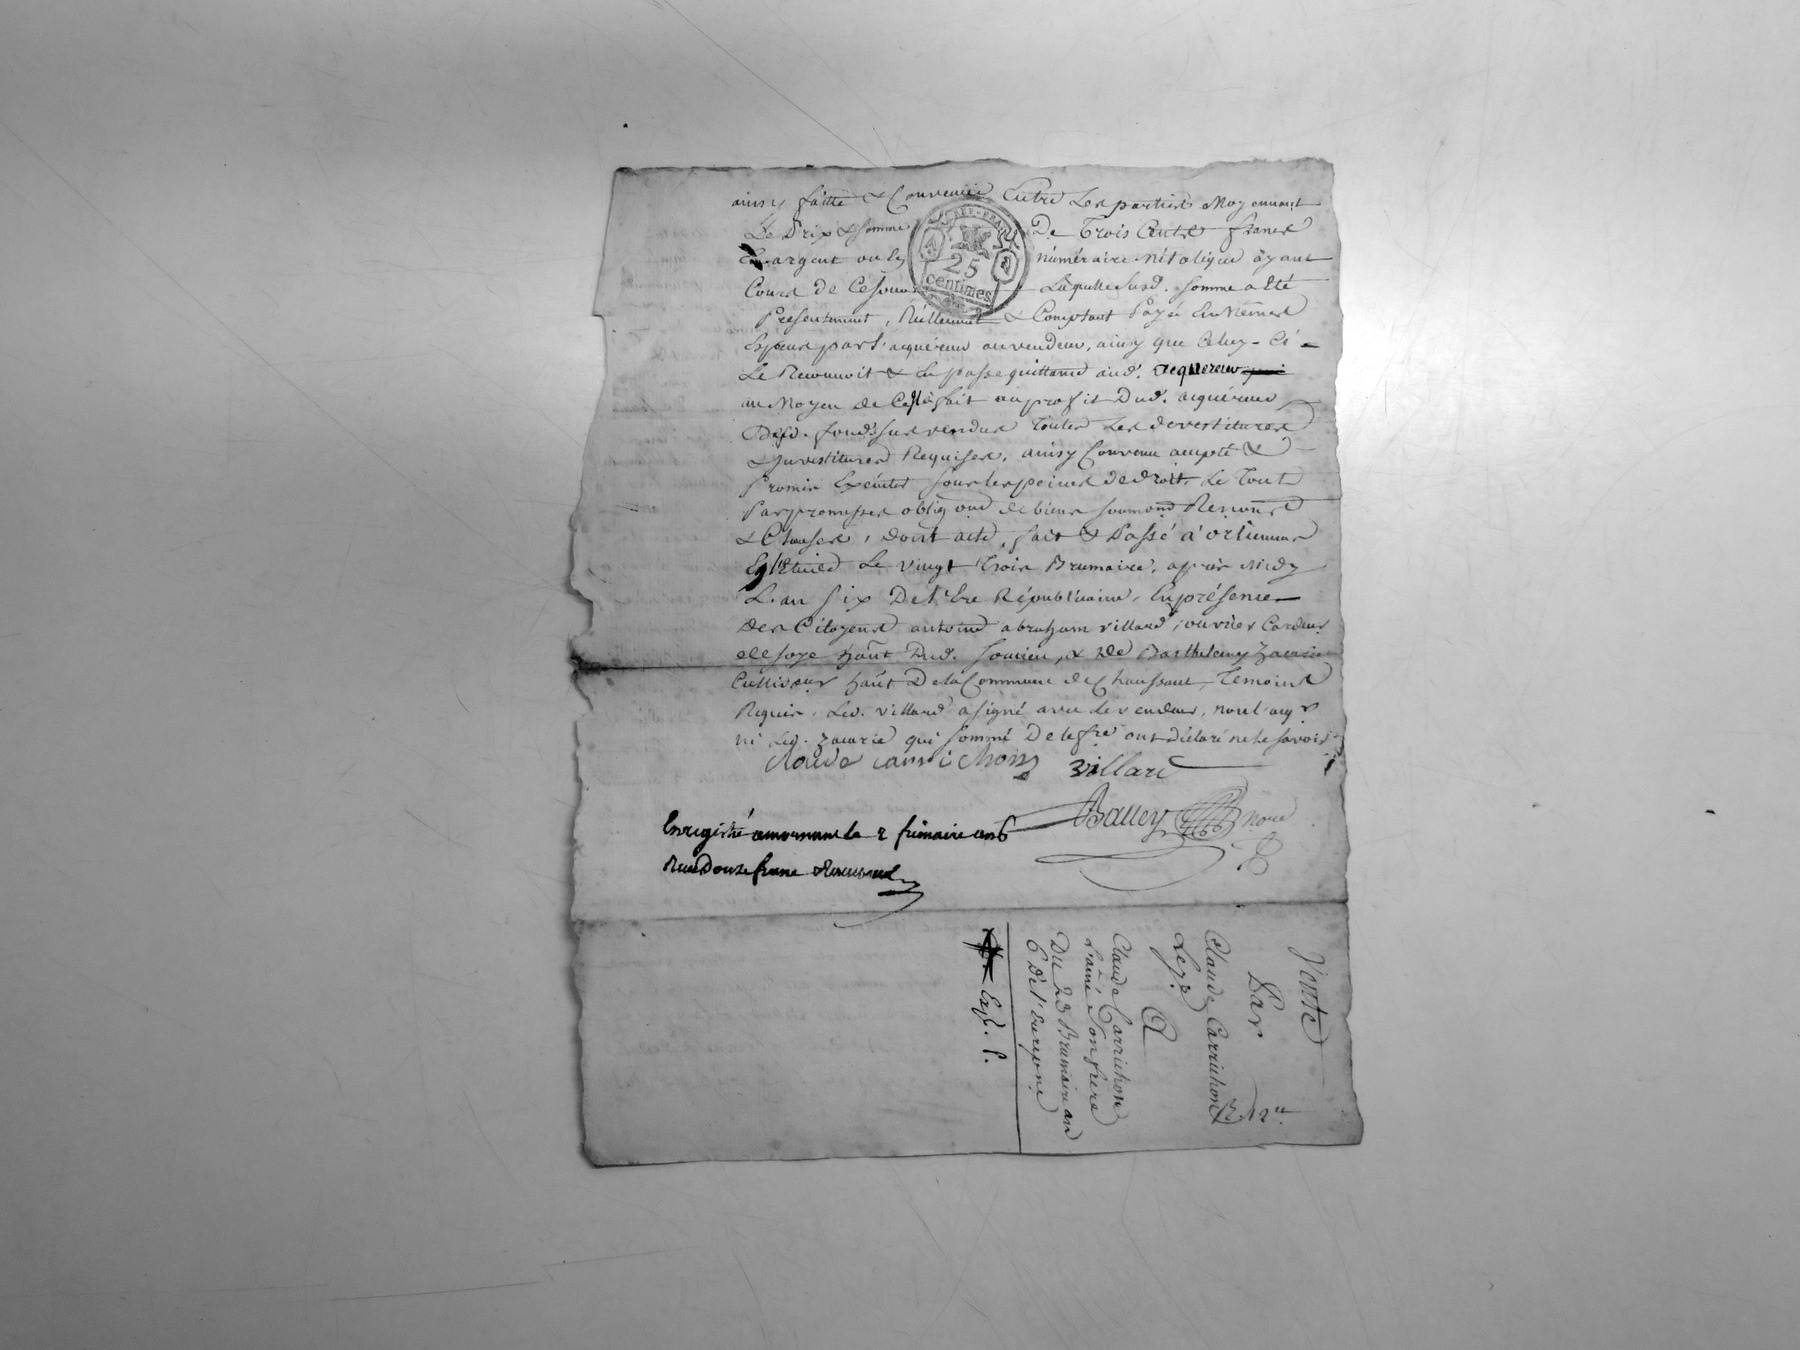 ainsy faitte & Convenüe Entre Les parties Moyennant
Le Prix & somme De Trois Cents francs
En argent ou en numéraire métalique ayant
Cours de Ce jour Laquelle susd. somme a Eté
Présentement, Réellement & Comptant Payée En mêmes
Espèces par l'acquéreur au vendeur, ainsy que Celuy-Ci
Le Reconnoit & En passe quittance aud. acquereur
au Moyen de Ce fait au profit Dud. acquéreur
Desd. fonds sus vendus Toutes Les devestitures
& Investitures Requises, ainsy Convenu accepté &
Promis Exécuter sous les peines de droit Le Tout
Par promesses oblig.ons de biens soumons Renons
& Clauses, dont acte, fait & Passé à orlienas
En l'Etude Le vingt Trois Brumaire, après midy
L'an six De l'Ere Républicaine, En présence
Des Citoyens antoine abraham villard, ouvrier Cardeur
de soye hant Dud. soucieu, & de Barthelemy Zacarie
Cultivateur hant De la Commune de Chaussant, Temoins
Requis, Led. villard a signé avec Le vendeur, non l'acqr
ni Led. Zacarie qui sommé De le fre ont déclaré ne le savoir
Claude Carrichon villard
Balley Nore
REP. FRA.
25
centimes
Enregistré a mornant le 2 frimaire an 6
Reçu Douze francs
Vente
Par
Claude Carrichon
Le jne
A
Claude Carrichon
L'ainé Son frere
Du 23 Brumaire an
6 De l'Ere rep.ne
Exp.